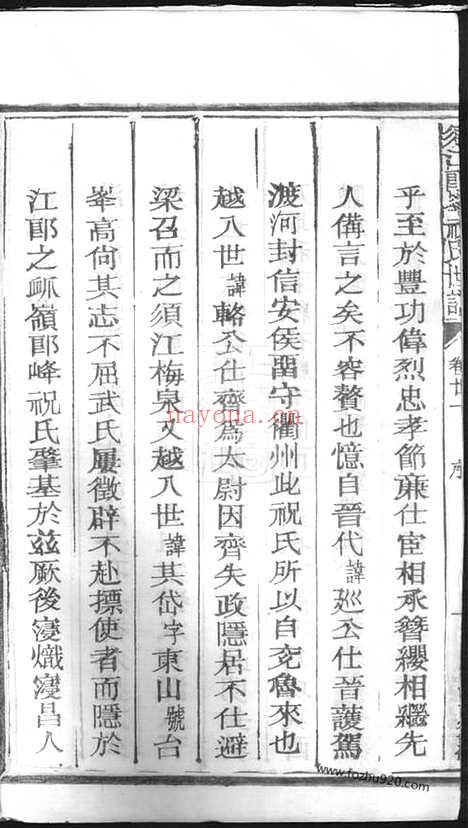 須江郎峰祝氏世譜 卷廿一 序
乎至於豐功偉烈忠孝節廉仕宦相承簪纓相繼先
人備言之矣不容贅也憶自晉代諱廵公仕晉護駕
渡河封信安侯畱守衢州此祝氏所以自兗魯來也
越八世諱輅公仕齊為太尉因齊失政隱居不仕避
梁召而之須江梅泉又越八世諱其岱字東山號台
峯高尙其志不屈武氏屢徵辟不赴摽使者而隱於
江郎之𠂢嶺郎峰祝氏肇基於茲厥後寖熾寖昌人
nayona.cn
www.fozhu920.com